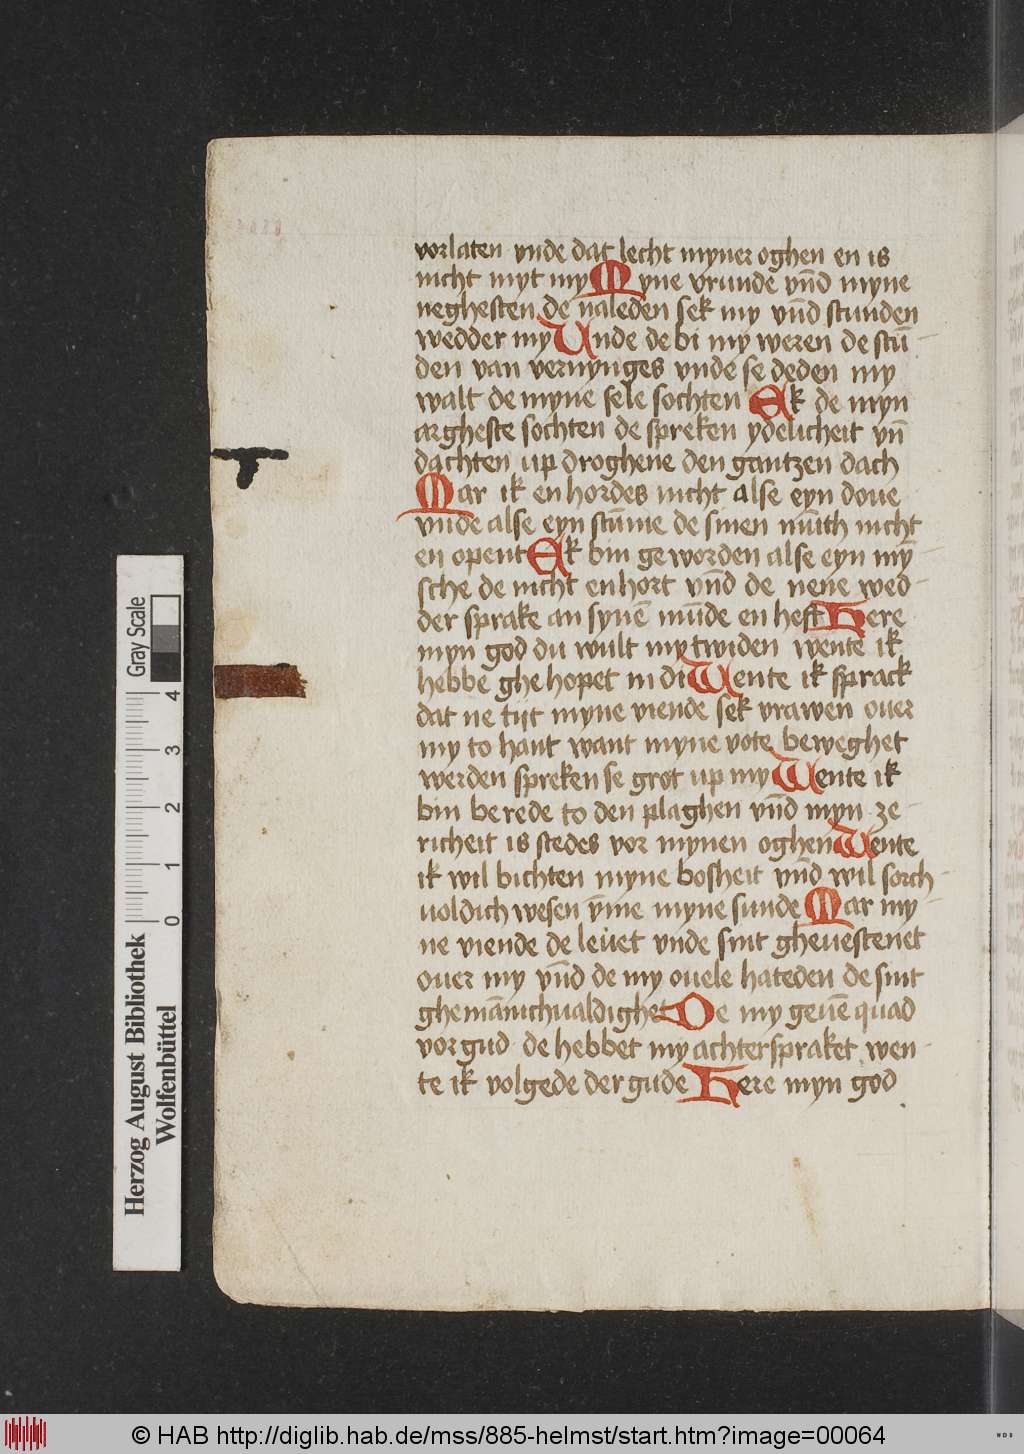 vorlaten vnde dat lecht myner oghen en is
nicht myt my Myne vrunde vn̄d myne
neghesten de naleden sek my vn̄d stunden
wedder my Unde de bi my weren de stū
den van vernynges vnde se deden my
walt de myne sele sochten Ek de myn
argheste sochten de spreken ydelicheit vn̄
dachten up droghene den gantzen dach
Mar ik en hordes nicht alse eyn doue
vnde alse eyn stūme de sinen mūth nicht
en opent Ek bin geworden alse eyn mȳ
sche de nicht en hort vn̄d de nene wed
der sprake an synē mūde en heft Here
myn god du wult my twiden wente ik
hebbe ghehopet in di Wente ik sprack
dat ne tijt myne viende sek vrawen ouer
my to hant want myne vote beweghet
werden spreken se grot up my Wente ik
bin berede to den plaghen vn̄d myn ze
richeit is stedes vor mynen oghen Wente
ik wil bichten myne bosheit vn̄d wil sorch
uoldich wesen v̄me myne sunde Mar my
ne viende de leuet vnde sint gheuestenet
ouer my vn̄d de my ouele hateden de sint
ghemānichualdighet De my geuē quad
vor gud de hebbet my achterspraket wen
te ik volgede der gude Here myn god
Herzog August Bibliothek
Wolfenbüttel
0 1 2 3 4
Gray Scale
© HAB http://diglib.hab.de/mss/885-helmst/start.htm?image=00064